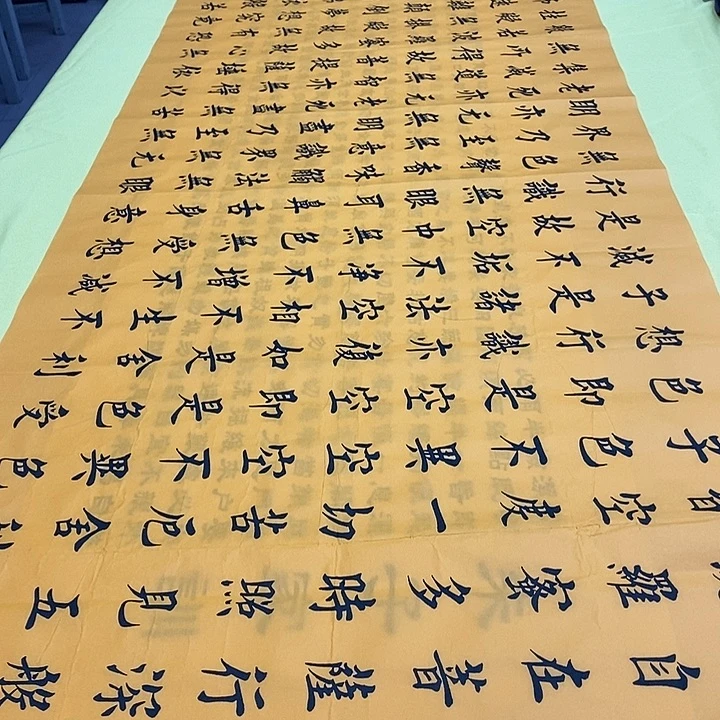 自在菩薩行深般
羅蜜多時照見五
皆空度一切苦厄舍利
子色不異空空不異色
色即是空空即是色受
想行識亦復如是舍利
子是諸法空相不生不
滅不垢不淨不增不減
是故空中無色無受想
行識無眼耳鼻舌身意
無色聲香味觸法無眼
界乃至無意識界無无
明亦无無明盡乃至無
老死亦无老死盡無苦
集滅道無智亦無得以
無所得故菩提薩埵依